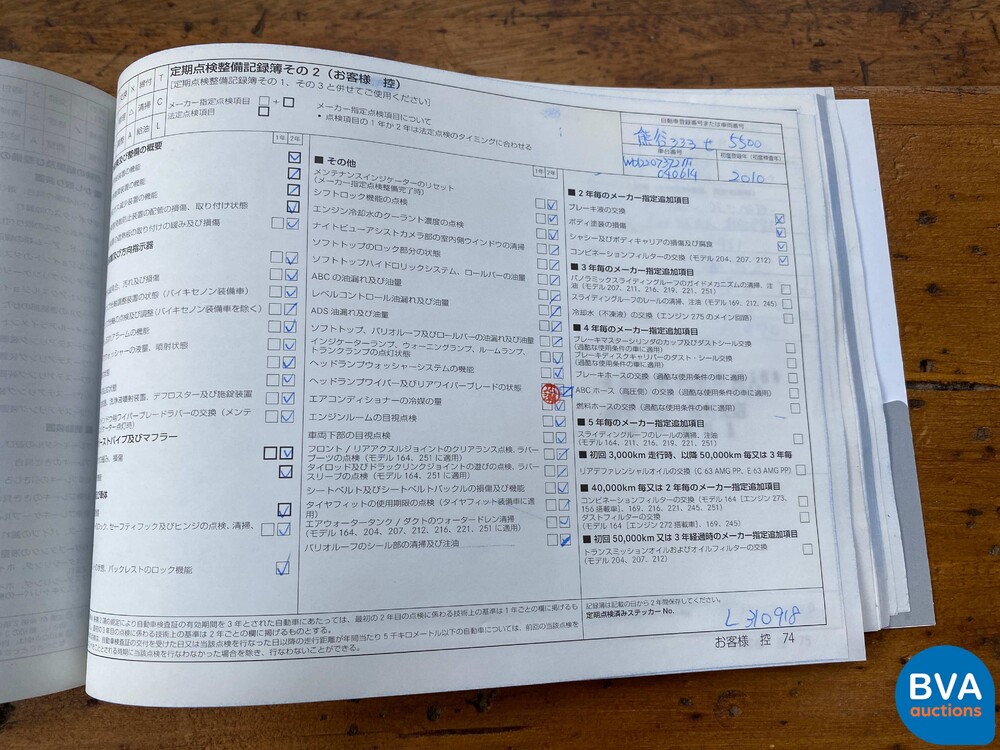 定期点検整備記録簿その2(お客様 控)
[定期点検整備記録簿その1、その3と併せてご使用ください]
× 締付 T
△ 清掃 C
A 給油 L
メーカー指定点検項目 □+□
法定点検項目 □
メーカー指定点検項目について
• 点検項目の1年か2年は法定点検のタイミングに合わせる
自動車登録番号または車両番号
熊谷 333 せ 5500
車台番号
初度登録年(初度検査年)
2010
1年 2年
及び整備の概要
の機能
装置の機能
装置の機能
の配管の損傷、取り付け状態
の取り付けの緩み及び損傷
及び方向指示器
汚れ及び損傷
調整装置の状態(バイキセノン装備車)
の点検及び調整(バイキセノン装備車を除く)
アラームの機能
ォッシャーの液量、噴射状態
洗浄液噴射装置、デフロスター及び施錠装置
ワイパーブレードラバーの交換(メンテ
ーター点灯時)
ーストパイプ及びマフラー
損傷
ロック、セーフティフック及びヒンジの点検、清掃、
バックレストのロック機能
1年 2年
■ その他
メンテナンスインジケーターのリセット
(メーカー指定点検整備完了時)
シフトロック機能の点検
エンジン冷却水のクーラント濃度の点検
ナイトビューアシストカメラ部の室内側ウインドウの清掃
ソフトトップのロック部分の状態
ソフトトップハイドロリックシステム、ロールバーの油量
ABC の油漏れ及び油量
レベルコントロール油漏れ及び油量
ADS 油漏れ及び油量
ソフトトップ、バリオルーフ及びロールバーの油漏れ及び油量
インジケーターランプ、ウォーニングランプ、ルームランプ、
トランクランプの点灯状態
ヘッドランプウォッシャーシステムの機能
ヘッドランプワイパー及びリアワイパーブレードの状態
エアコンディショナーの冷媒の量
エンジンルームの目視点検
車両下部の目視点検
フロント / リアアクスルジョイントのクリアランス点検、ラバー
ブーツの点検(モデル 164、251 に適用)
タイロッド及びドラックリンクジョイントの遊びの点検、ラバー
スリーブの点検(モデル 164、251 に適用)
シートベルト及びシートベルトバックルの損傷及び機能
タイヤフィットの使用期限の点検(タイヤフィット装備車に適
用)
エアウォータータンク / ダクトのウォータードレン清掃
(モデル 164、204、207、212、216、221、251 に適用)
バリオルーフのシール部の清掃及び注油
■ 2年毎のメーカー指定追加項目
ブレーキ液の交換
ボディ塗装の損傷
シャシー及びボディキャリアの損傷及び腐食
コンビネーションフィルターの交換(モデル 204、207、212)
■ 3年毎のメーカー指定追加項目
パノラミックスライディングルーフのガイドメカニズムの清掃、注
油(モデル 207、211、216、219、221、251)
スライディングルーフのレールの清掃、注油(モデル 169、212、245)
冷却水(不凍液)の交換(エンジン 275 のメイン回路)
■ 4年毎のメーカー指定追加項目
ブレーキマスターシリンダのカップ及びダストシール交換
(過酷な使用条件の車に適用)
ブレーキディスクキャリパーのダスト・シール交換
(過酷な使用条件の車に適用)
ブレーキホースの交換(過酷な使用条件の車に適用)
ABC ホース(高圧側)の交換(過酷な使用条件の車に適用)
燃料ホースの交換(過酷な使用条件の車に適用)
■ 5年毎のメーカー指定追加項目
スライディングルーフのレールの清掃、注油
(モデル 164、211、216、219、221、251)
■ 初回 3,000km 走行時、以降 50,000km 毎又は3年毎
リアデファレンシャルオイルの交換(C 63 AMG PP、E 63 AMG PP)
■ 40,000km 毎又は2年毎のメーカー指定追加項目
コンビネーションフィルターの交換(モデル 164 [エンジン 273、
156 搭載車]、169、216、221、245、251)
ダストフィルターの交換
(モデル 164 [エンジン 272 搭載車]、169、245)
■ 初回 50,000km 又は3年経過時のメーカー指定追加項目
トランスミッションオイルおよびオイルフィルターの交換
(モデル 204、207、212)
の規定により自動車検査証の有効期間を3年とされた自動車にあたっては、最初の2年目の点検に係わる技術上の基準は1年ごとの欄に掲げるもの
の2年目の点検に係わる技術上の基準は2年ごとの欄に掲げるものとする。
自動車検査証の交付を受けた日又は当該点検を行なった日以降の走行距離が年間当たり5千キロメートル以下の自動車については、前回の当該点検を
する時期に当該点検を行なわなかった場合を除き、行なわないことができる。
記録簿は記載の日から2年間保存してください。
定期点検済みステッカー No.
L 310918
お客様 控 74
BVA
auctions